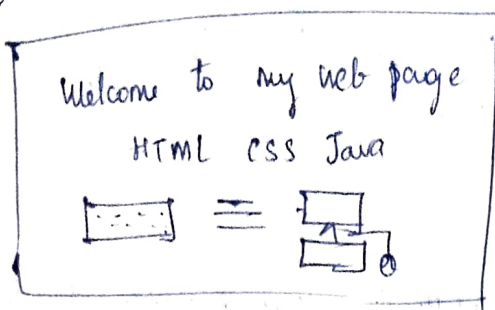 Welcome to my web page
HTML CSS Java